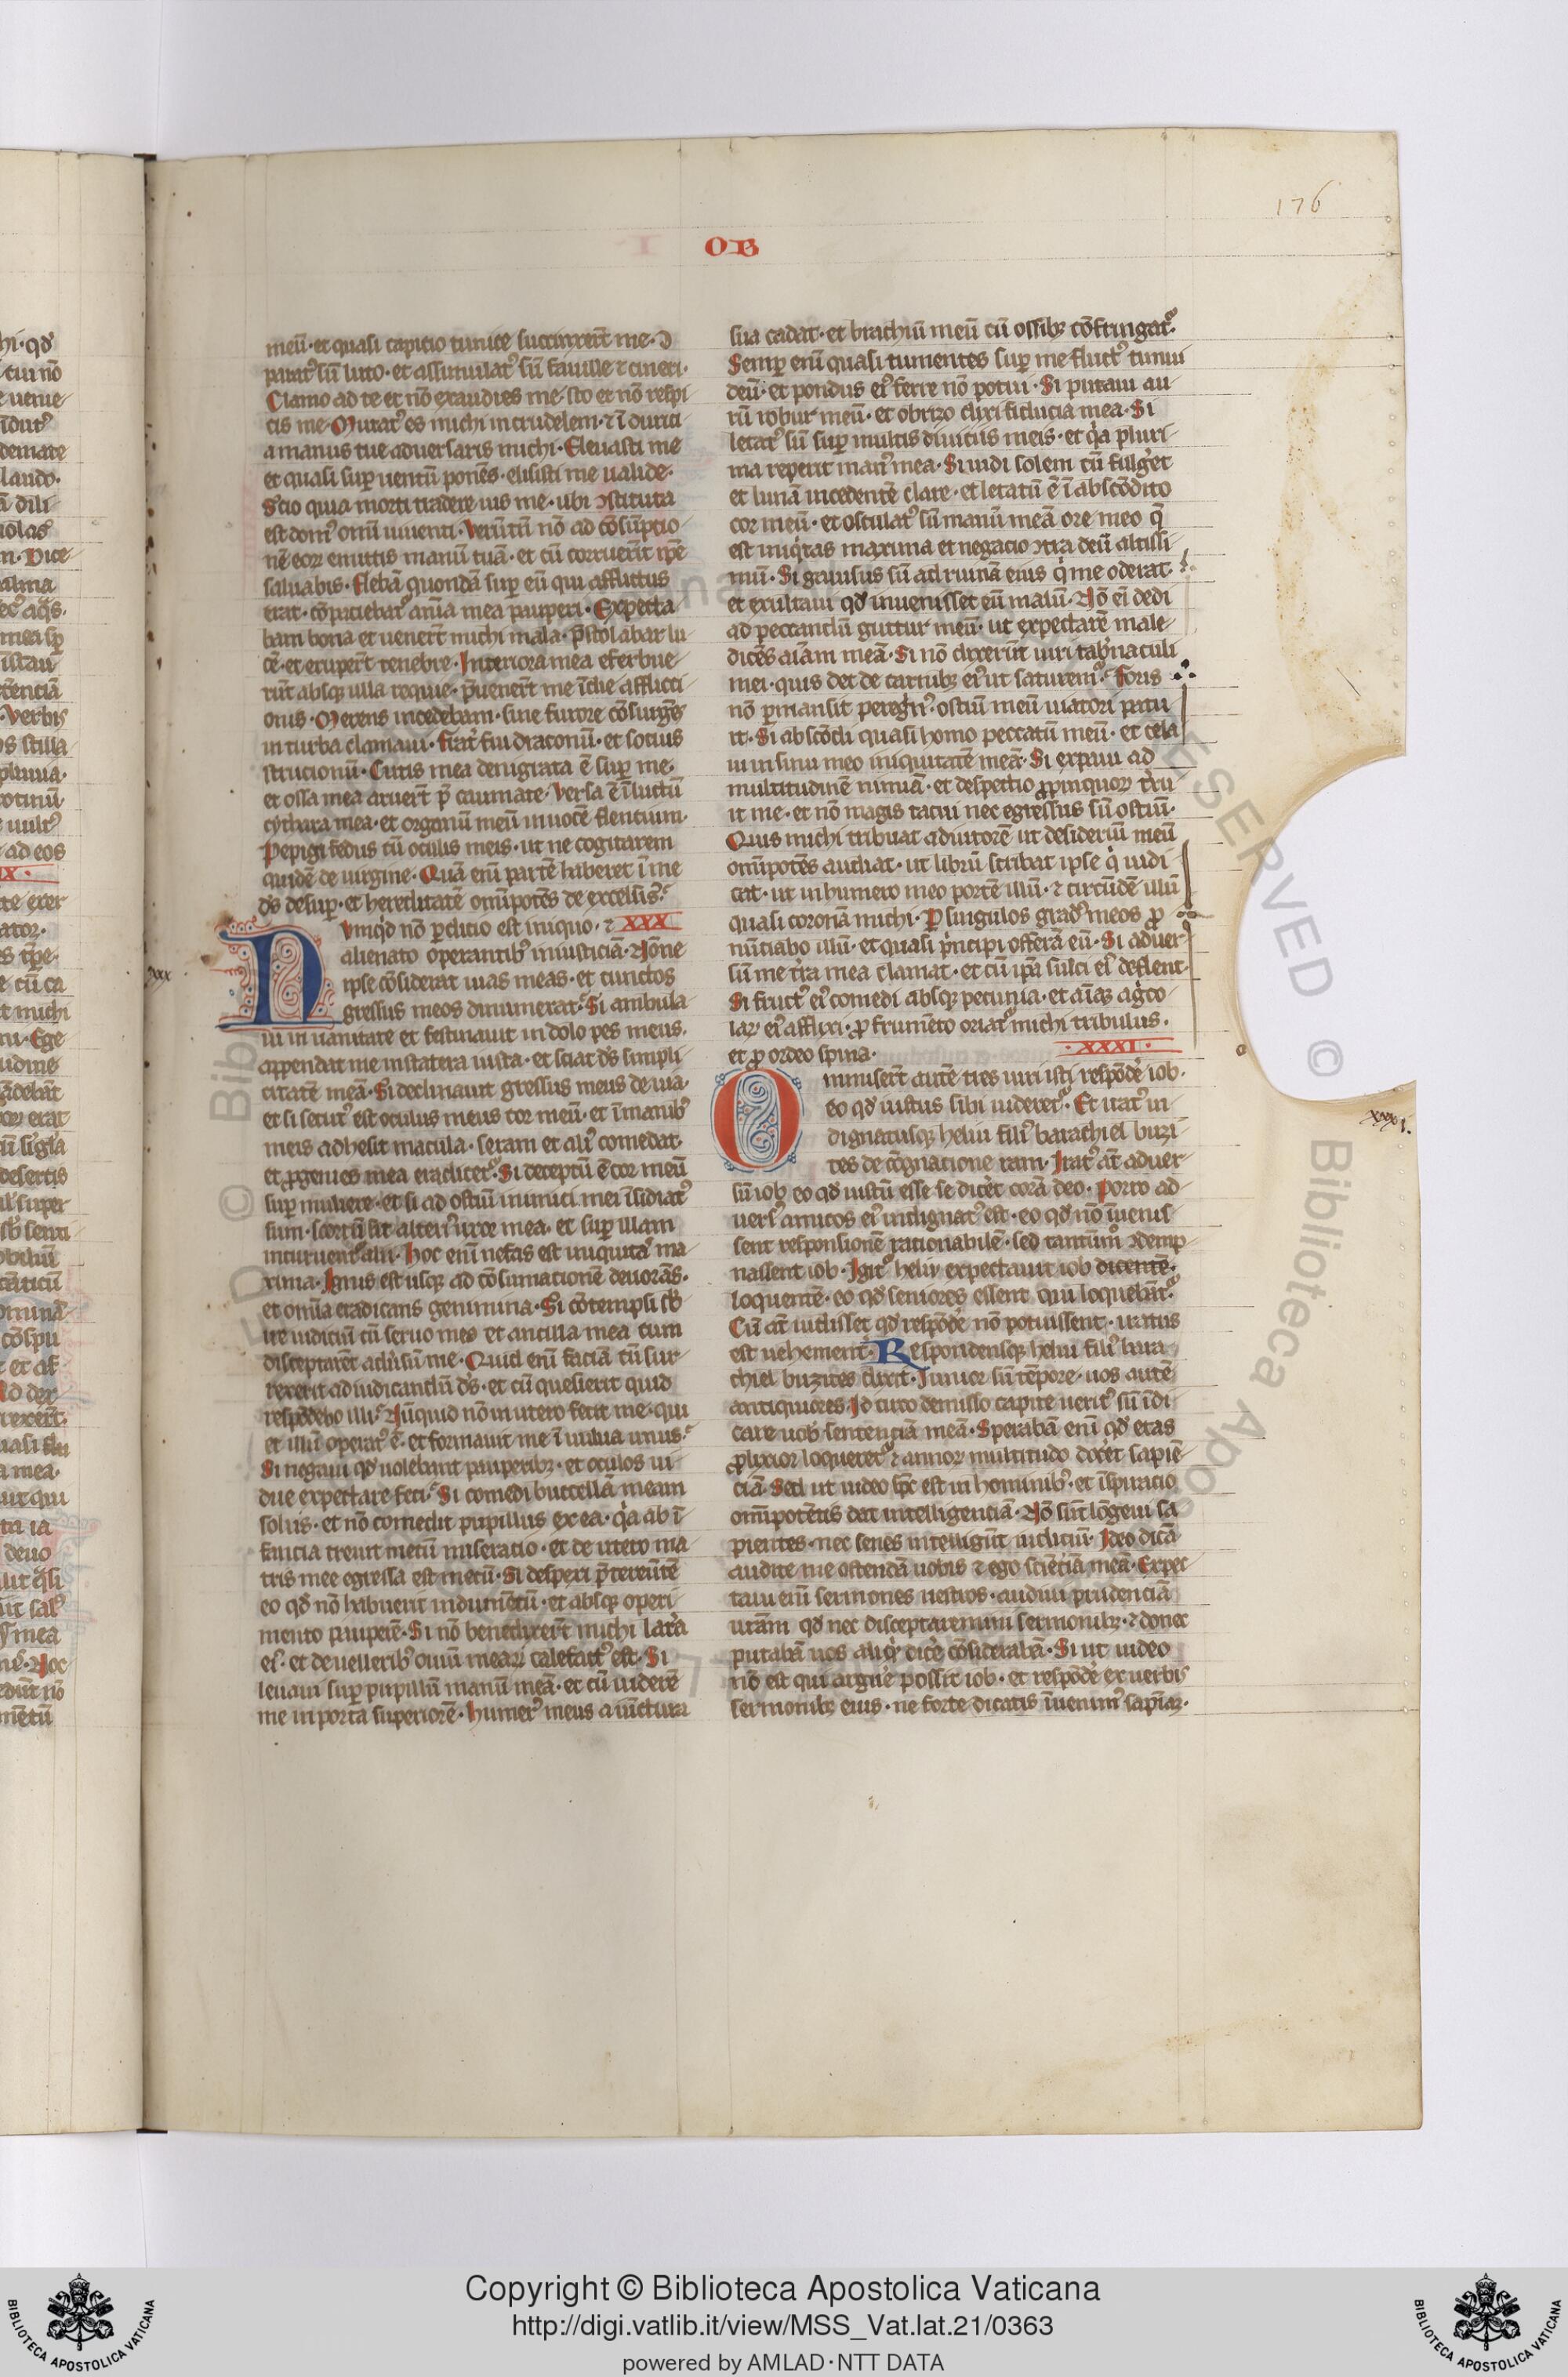 176
I OB
meū·et quasi capicio tunice succinxert̄ me·Ↄ
parat⁹ sū luto·et assimilat⁹ sū fauille ⁊ cineri·
Clamo ad te et nō exaudies me·sto et nō respi
cis me·Mutat⁹ es michi in crudelem·⁊ ī durici
a manus tue aduersaris michi·Eleuasti me
et quasi suꝑ uentū ponēs·elisisti me ualide·
Scio quia morti trades me·ubi ↄstituta
est dom⁹ om̄i uiuenti·Verūtn̄ nō ad cōsūptio
nē eoꝝ emittis manū tuā·et cū corruerīt ip̄e
saluabis·Flebā quondā suꝑ eū qui afflictus
erat·cōpaciebat᷑ anīa mea pauperi·Expecta
bam bona et uenert̄ michi mala·p̄stolabar lu
cē·et eruꝑert̄ tenebre·Interiora mea eferbue
rūt absqꝫ ulla requie·p̄uenert̄ me īdie afflicti
onis·Merens incedebam·sine furore cōsurgēs
in turba clamaui·frat᷑ fui draconū·et socius
strucionū·Cutis mea denigrata ē suꝑ me·
et ossa mea aruert̄ p̄ caumate·Versa ē ī luctū
cythara mea·et organū meū in uocē flentium·
Pepigi fedus cū oculis meis·ut ne cogitarem
quidē de uirgine·Quā enī partē haberet ī me
dꝰs desuꝑ·et hereditatē om̄ipotēs de excelsis?
Vniqd̓ nō ꝑdicio est iniquo·⁊ XXX
alienato operantib⁹ iniusticiā·Nōne
ipse cōsiderat uias meas·et cunctos
gressus meos dinumerat?Si ambula
ui in uanitate et festinauit in dolo pes meus·
appendat me in statera iusta·et sciat dꝰs simpli
citatē meā·Si declinauit gressus meus de uia·
et si secut⁹ est oculus meus cor meū·et ī manib⁹
meis adhesit macula·seram et ali⁹ comedat·
et ꝓgenies mea eradicet᷑·Si deceptū ē cor meū
suꝑ muliere·et si ad ostiū inimici mei īsidiat⁹
sum·scortū sit alteri⁹ uxor mea·et suꝑ illam
incuruent᷑ alii·Hoc enī nefas est iniquitas ma
xima·Ignis est usqꝫ ad cōsumationē deuorās·
et om̄ia eradicans genimina·Si cōtempsi sb̓
ire iudiciū cū seruo meo et ancilla mea cum
disceptarēt aduſū me·Quid enī faciā cū sur
rexerit ad iudicandū dꝰs·et cū quesierit quid
respōdebo illi?Nūquid nō in utero fecit me·qui
et illū operat⁹ ē·et formauit me ī uulua unus?
Si negaui qd̓ uolebant pauperibꝫ·et oculos ui
due expectare feci?Si comedi buccellā meam
solus·et nō comedit pupillus ex ea·qͥa ab ī
fancia creuit mecū miseratio·et de utero ma
tris mee egressa est mecū·Si despexi p̄tereūtē
eo qd̓ nō habuerit indumētū·et absqꝫ operi
mento pauperē·Si nō benedixert̄ michi lat᷑a
ei⁹·et de uellerib⁹ ouiū meaꝝ calefact⁹ est·Si
leuaui suꝑ pupillū manū meā·et cū uiderē
me in porta superiorē·humer⁹ meus a iūctura
sua cadat·et brachiū meū cū ossibꝫ cōfringat᷑·
Semꝑ enī quasi tumentes suꝑ me fluct⁹ timui
deū·et pondus ei⁹ ferre nō potui·Si putaui au
rū robur meū·et obrizo dixi fiducia mea·Si
letat⁹ sū suꝑ multis diuiciis meis·et qͥa pluri
ma reperit man⁹ mea·Si uidi solem cū fulgēt
et lunā incedentē clare·et letatū ē ī abscōdito
cor meū·et osculat⁹ sū manū meā ore meo q̄
est iniqͥtas maxima et negacio ↄtra deū altissi
mū·Si gauisus sū ad ruinā eius qͥ me oderat·
et exultaui qd̓ inuenisset eū malū·Nō eī dedi
ad peccandū guttur meū·ut expectarē male
dicēs aīam meā·Si nō dixerūt uiri tab᷑naculi
mei·quis det de carnibꝫ ei⁹ ut saturem᷑·Foris
nō ꝑmansit peregrin⁹·ostiū meū uiatori patu
it·Si abscōdi quasi homo peccatū meū·et cela
ui in sinu meo iniquitatē meā·Si expaui ad
multitudinē nimiā·et despectio ꝓpinquoꝝ t᷑ru
it me·et nō magis tacui nec egressus sū ostiū·
Quis michi tribuat adiutorē ut desideriū meū
om̄ipotēs audiat·ut librū scribat ipse qͥ iudi
cat·ut in humero meo portē illū·⁊ circūdē illū
quasi coronā michi·Per singulos grad⁹ meos ꝓ
nūciabo illū·et quasi pͥncipi offerā eū·Si aduer
sū me t᷑ra mea clamat·et cū ip̄a sulci ei⁹ deflent·
Si fruct⁹ ei⁹ comedi absqꝫ pecunia·et aīaꝫ agͥco
laꝝ ei⁹ afflixi·ꝓ frumēto oriat᷑ michi tribulus·
et ꝓ ordeo spina· ·XXXI·
Omiserūt autē tres uiri isti respōde᷑ iob·
eo qd̓ iustus sibi uideret᷑·Et irat⁹ in
dignatusqꝫ heliu fili⁹ barachiel buzi
tes de cōgnacione ram·Irat⁹ at̄ aduer
sū iob eo qd̓ iustū esse se dice᷑t corā deo·Porro ad
uers⁹ amicos ei⁹ indignat⁹ est·eo qd̓ nō īuenis
sent responsionē rationabilē·sed tantūm᷑ ↄdemp
nassent iob·Igit᷑ heliu expectauit iob dicentē·
loquentē·eo qd̓ seniores essent qui loquebāt᷑·
Cū at̄ uidisset qd̓ respōde᷑ nō potuissent·iratus
est uehement᷑·Respondensqꝫ heliu fili⁹ bara
chiel buzites dixit·Iunior sū tēpore·uos autē
antiquiores·Id circo demisso capite uerit⁹ sū īdi
care uob᷑ sentenciā meā·Sperabā enī qd̓ etas
ꝓlixior loqueret᷑ ⁊ annoꝝ multitudo doce᷑t sapiē
ciā·Sed ut uideo sp̄c est in hominib⁹·et īspiracio
om̄ipotētis dat intelligenciā·Nō sūt lōgeui sa
pientes·nec senes intelligūt iudiciū·Ideo dicā
audite me ostendā uobis ⁊ ego sciēciā meā·Expec
taui enī sermones uestros·audiui prudenciā
uram̄ qd̓ nec disceptaremini sermonibꝫ·⁊ donec
putabā uos aliqͥd dice᷑ cōsiderabā·Si ut uideo
nō est qui argue᷑ possit iob·et respōde᷑ ex uerbis
sermonibꝫ eius·ne forte dicatis īuenim⁹ sapīaꝫ·
xxx
xxxi.
Copyright © Biblioteca Apostolica Vaticana
http://digi.vatlib.it/view/MSS_Vat.lat.21/0363
powered by AMLAD·NTT DATA
BIBLIOTECA APOSTOLICA VATICANA
BIBLIOTECA APOSTOLICA VATICANA